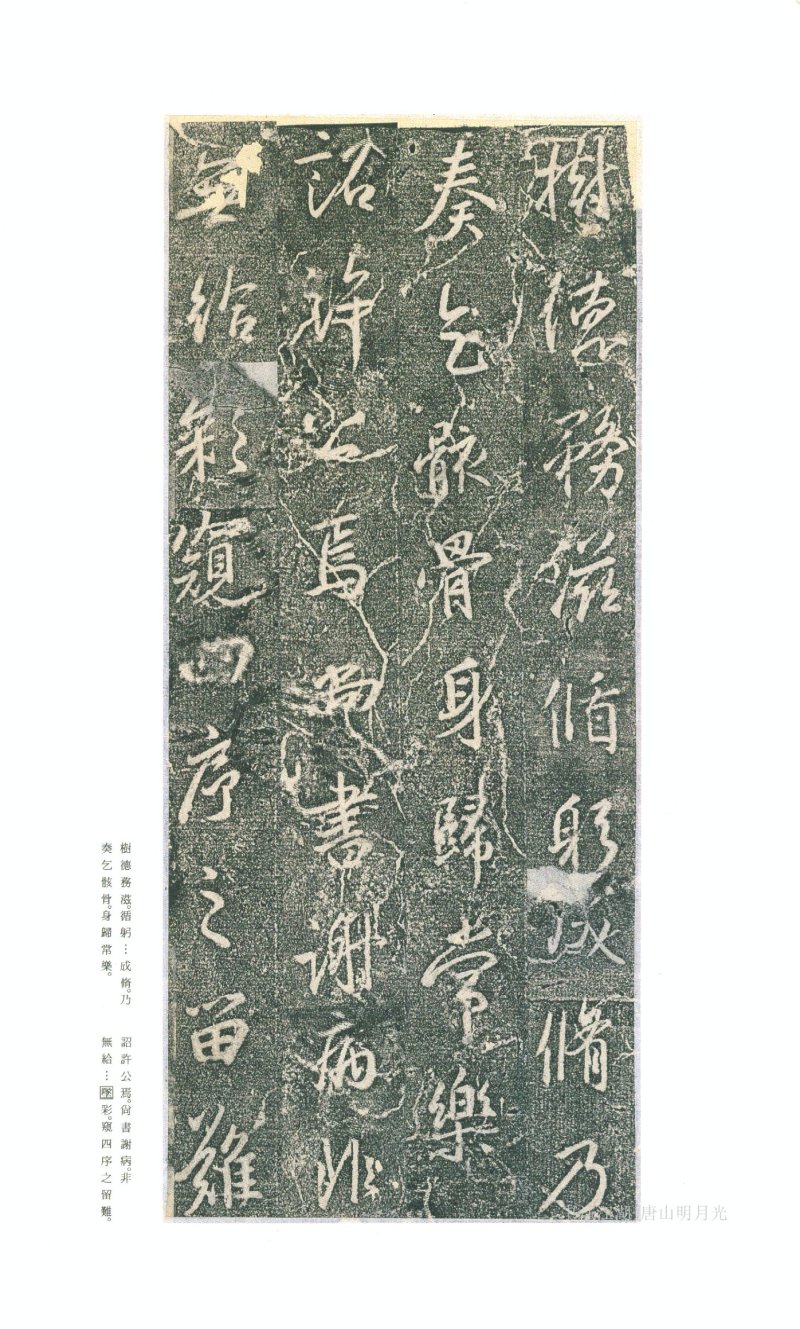 樹德務滋循躬成脩乃
奏乞骸骨身歸常樂
詔許公焉尚書謝病非
無給彩窺四序之留難
樹德務滋。循躬…成脩。乃
奏乞骸骨。身歸常樂。
詔許公焉。尙書謝病。非
無給…彩。窺四序之留難。
唐山明月光